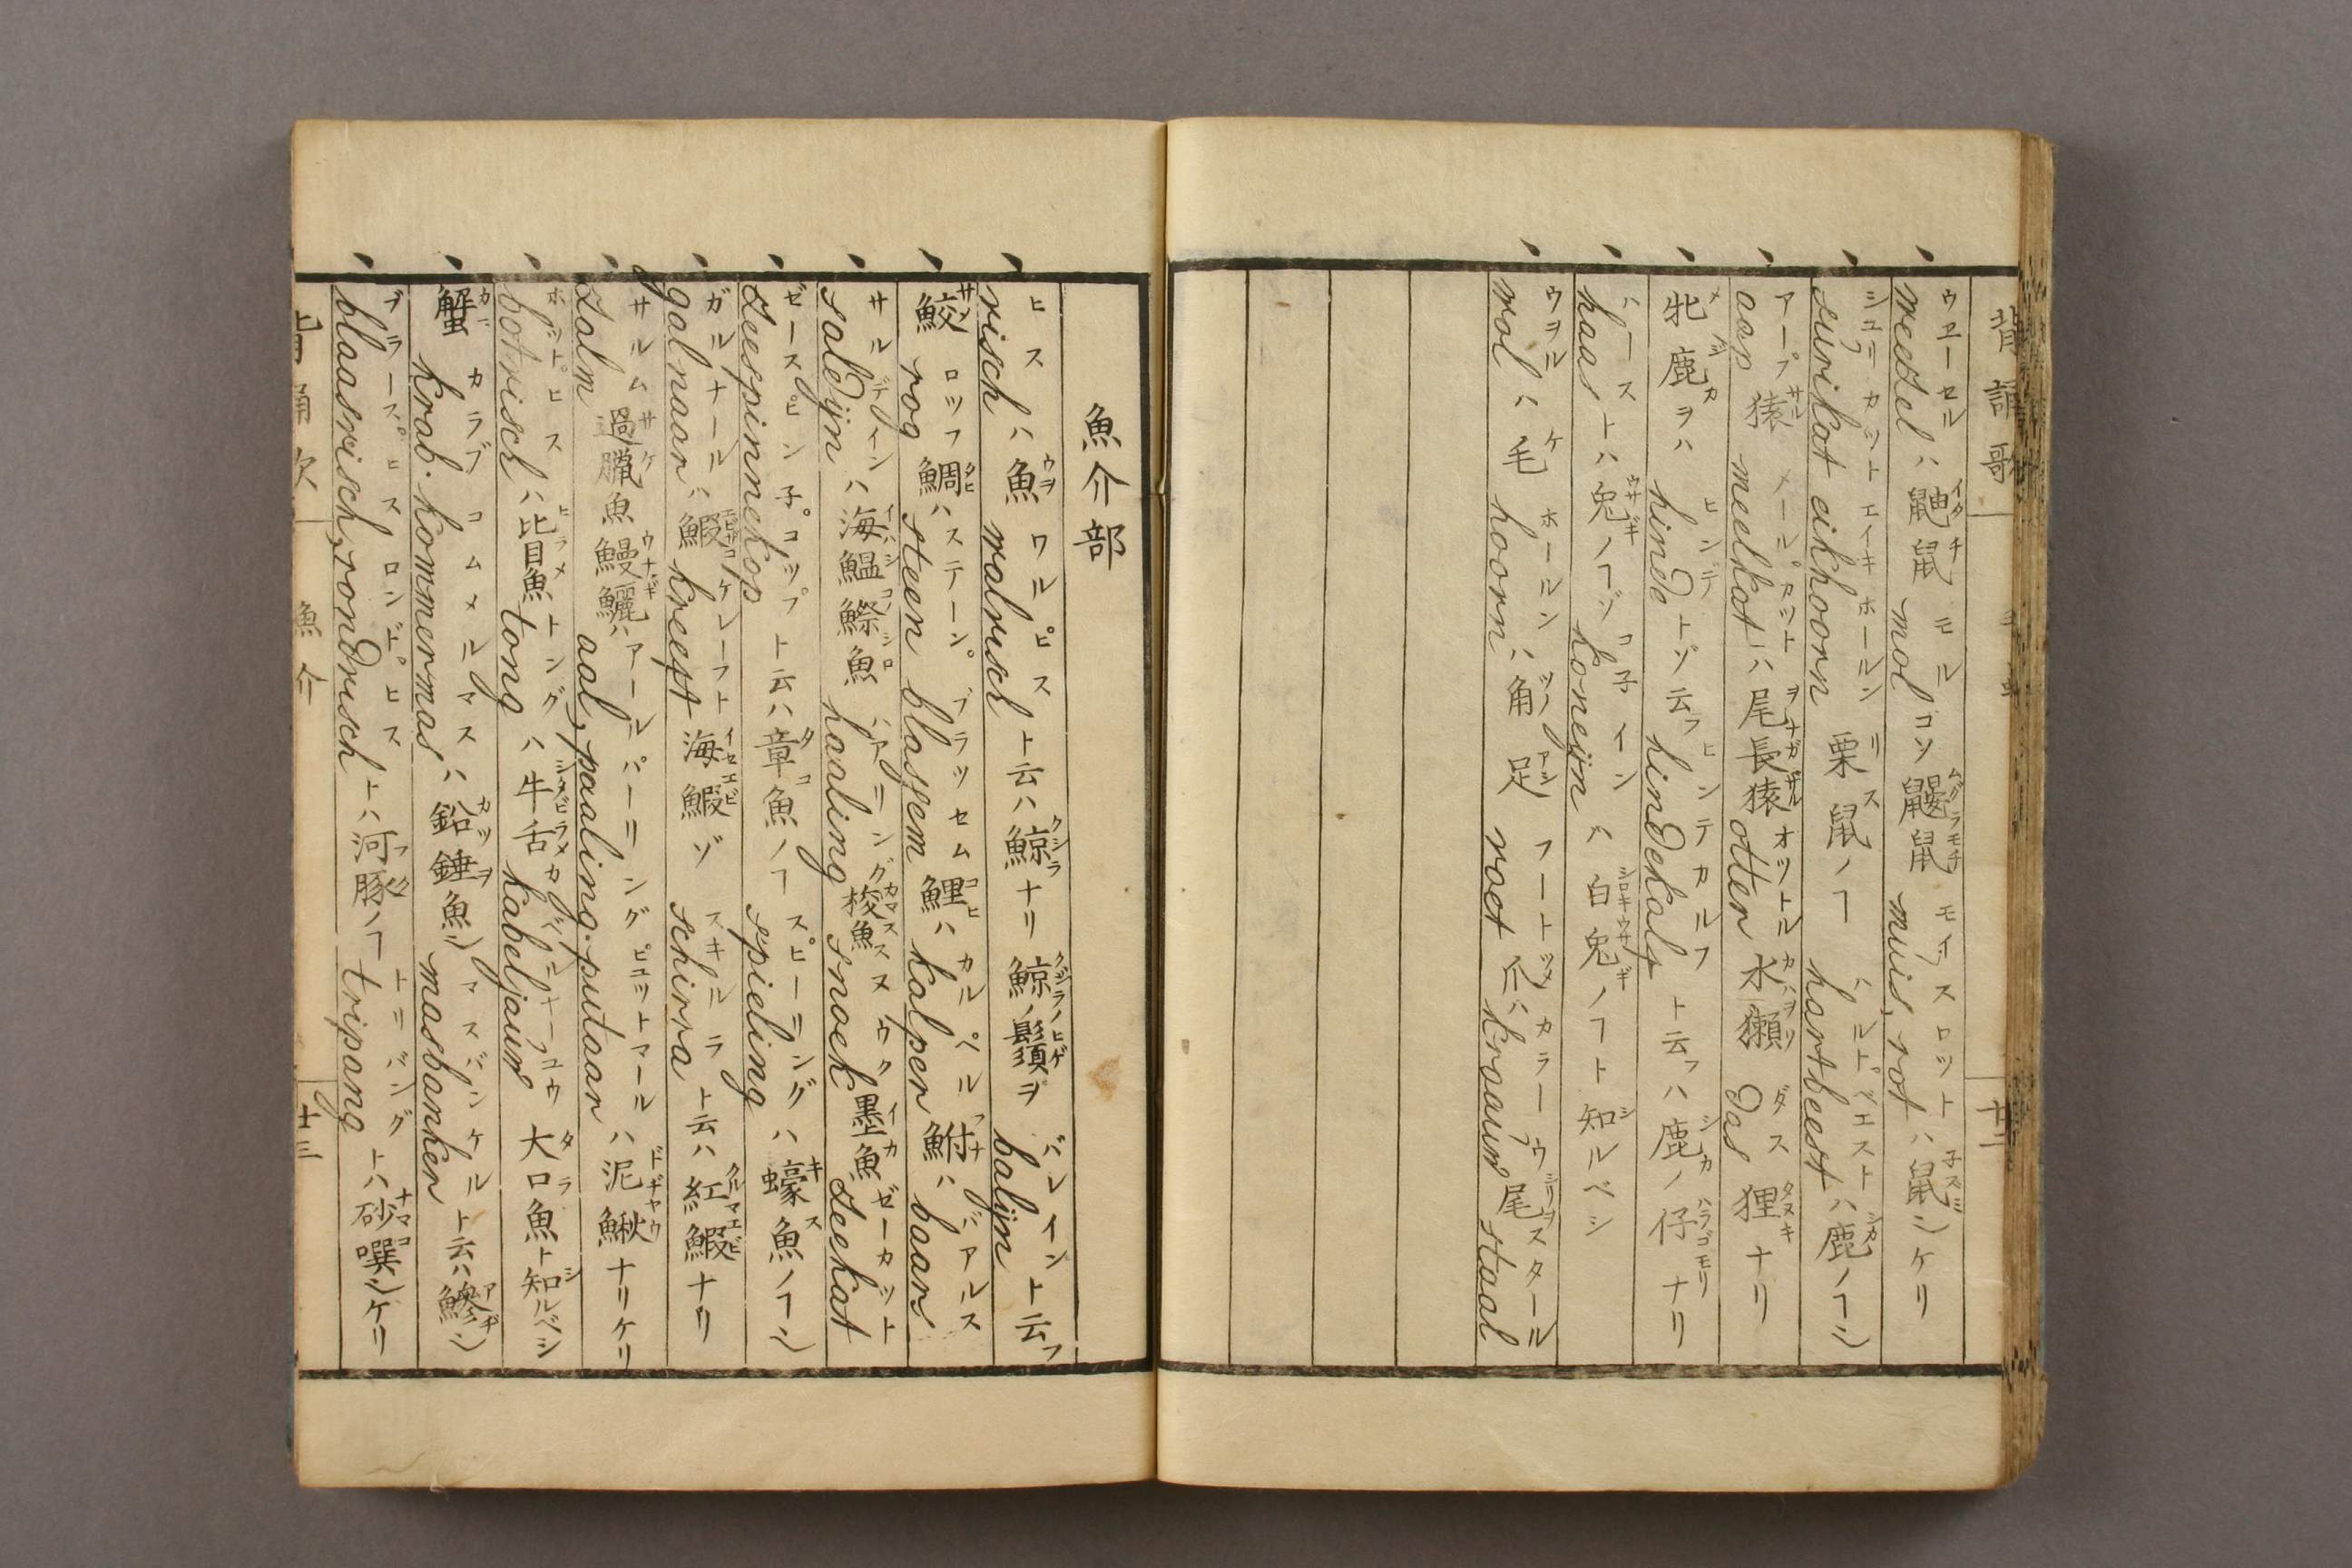 背誦歌
廿二
weezelハ鼬鼠 molコソ鼴鼠 muis, rotハ鼠ケリ
surikat eikhoorn 栗鼠ノヿ hartbeestハ鹿ノヿ
aap 猿 meelkatハ尾長猿 otter 水獺 das 狸ナリ
牝鹿ヲハ hindeトゾ云フ hindekalf ト云フハ鹿ノ仔ナリ
haasトハ兔ノヿゾ koneijnハ白兔ノヿト知ルベシ
wolハ毛 hoornハ角 足 voet 爪ハ kraauw 尾 staal
魚介部
vischハ魚 walvischト云ハ鯨ナリ 鯨ノ鬚ヲ balijnト云フ
鮫 rog 鯛ハ steen blassem 鯉ハ kalper 鮒ハ baars
saldijnハ海鰮 鰶魚 haaling 梭魚 snoek 墨魚 zeekat
zeespinnekopト云ハ章魚ノヿ spielingハ蠔魚ノヿ
galnaarハ鰕 kreeft 海鰕ゾ schirraト云ハ紅鰕ナリ
zalm 過臘魚 鰻鱺ハ aal, paaling. putaarハ泥鰍ナリケリ
botvischハ比目魚 tongハ牛舌 kabeljauw 大口魚ト知ルベシ
蟹 krab. kommermasハ鉛錘魚 masbankerト云ハ鰺
blaasvisch, rondvischトハ河豚ノヿ tripangトハ砂噀ケリ
魚介
廿三